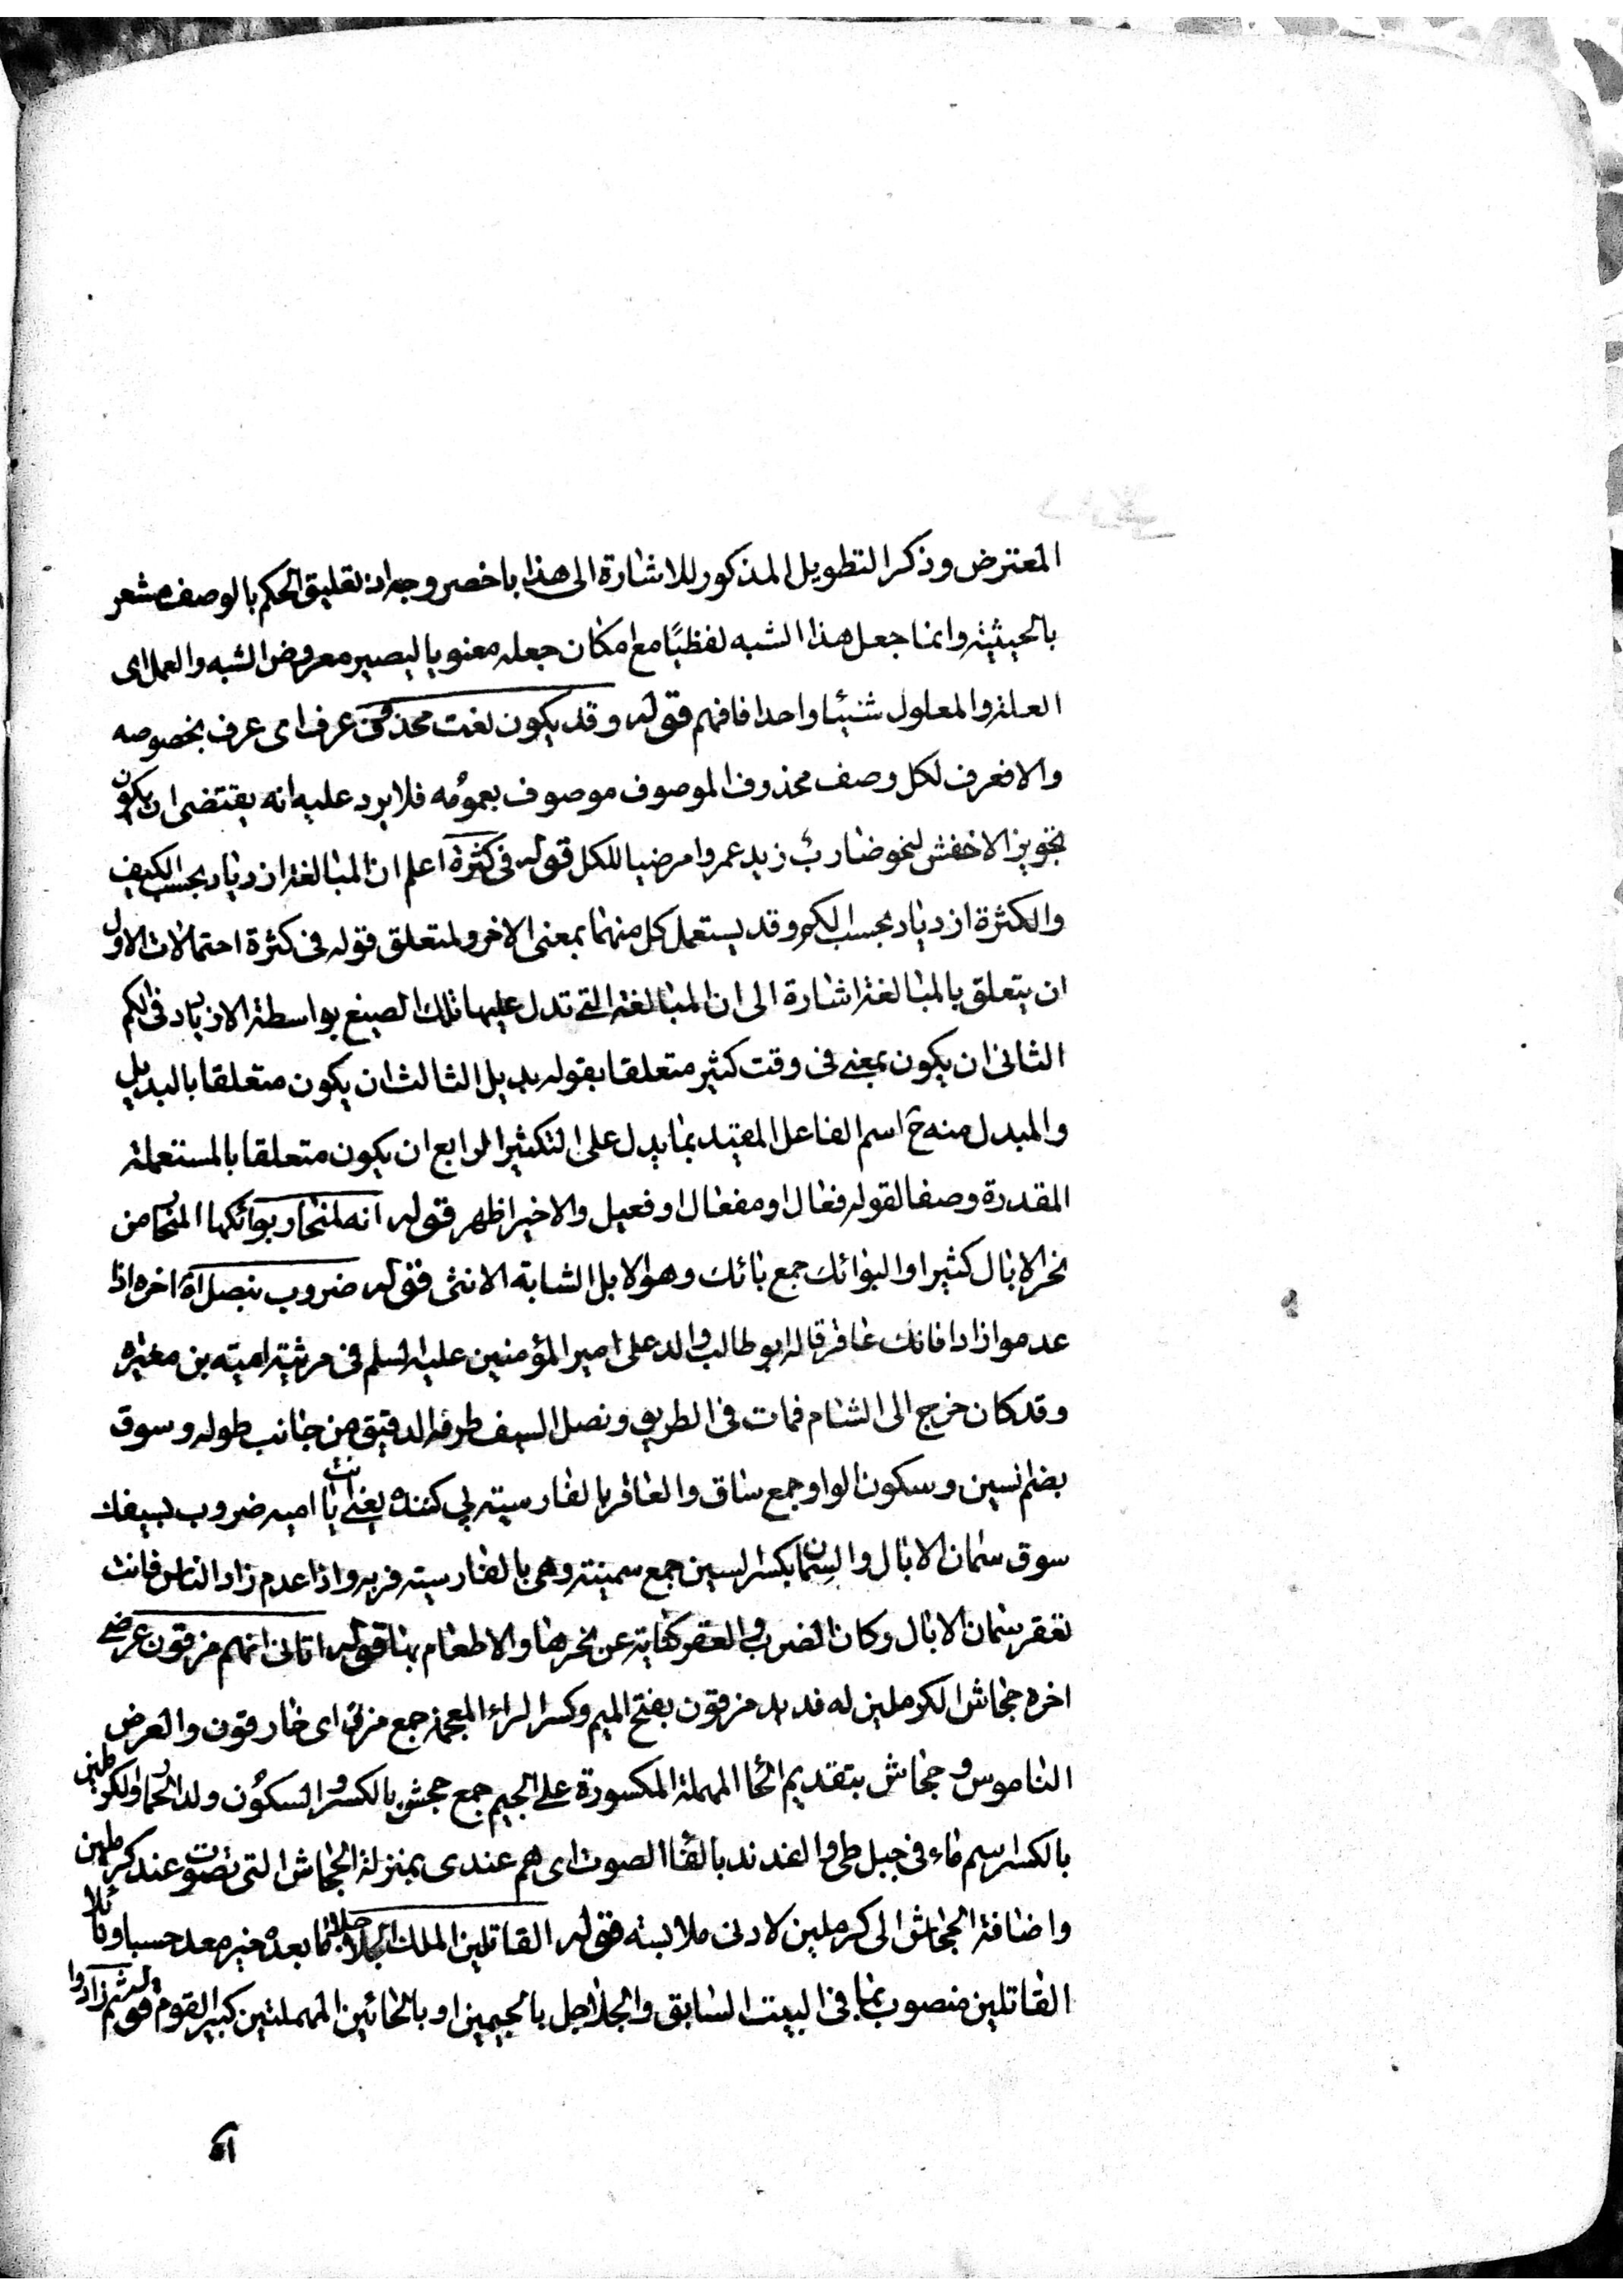 المعترض وذكر التطويل المذكور للاشارة الى هذا باخصر وجه اذ تعليق الحكم بالوصف مشعر
بالحيثية وانما جعل هذا الشبه لفظيًا مع امكان جعله معنويا ليصير معروض الشبه والعمل اى
العلة والمعلول شيئا واحدا فافهم قوله وقد يكون نعت محذوف عرف اى عرف بخصوصه
والا فعرف لكل وصف محذوف الموصوف موصوف بعمومه فلا يرد عليه انه يقتضى ان يكون
تجويز الاخفش لنحو ضارب زيد عمروا مرضيا للكل قوله فى كثرة اعلم ان المبالغة ازدياد بحسب الكيف
والكثرة ازدياد بحسب الكم وقد يستعمل كل منهما بمعنى الاخر ولمتعلق قوله فى كثرة احتمالات الاول
ان يتعلق بالمبالغة اشارة الى ان المبالغة التى تدل عليها تلك الصيغ بواسطة الازدياد فى الكم
الثانى ان يكون بمعنى فى وقت كثير متعلقا بقوله بديل الثالث ان يكون متعلقا بالبديل
والمبدل منه ح اسم الفاعل المقيد بما يدل على التكثير الرابع ان يكون متعلقا بالمستعملة
المقدرة وصفا لقوله فعال او مفعال او فعيل والاخير اظهر قوله انه لمنحار بوائكها المنحار من
نحر الابال كثيرا والبوائك جمع بائك وهو الابل الشابة الانثى قوله ضروب بنصل اه اخره اذا
عدموا زادا فانك عاقر قاله ابو طالب والد على امير المؤمنين عليه السلم فى مرثية امية بن مغيره
وقد كان خرج الى الشام فمات فى الطريق ونصل السيف طرفه الدقيق من جانب طوله وسوق
بضم السين وسكون الواو جمع ساق والعاقر بالفارسية پى كننده يعنى انت يا اميه ضروب بسيفك
سوق سمان الابال والسمان بكسر السين جمع سمينة وهى بالفارسية فربه واذا عدم زاد الناس فانت
تعقر سمان الابال وكان الضرب والعقر كناية عن نحرها والاطعام بها قوله اتانى انهم مزقون عرضى
اخره جحاش الكرملين له فديد مزقون بفتح الميم وكسر الراء المعجمة جمع مزق اى خارقون والعرض
الناموس وجحاش بتقديم الحا المهملة المكسورة على الجيم جمع جحش بالكسر والسكون ولد الحمار والكرملين
بالكسر اسم ماء فى جبل طى والفديد بالفا الصوت اى هم عندى بمنزلة الجحاش التى تصوت عند كرملين
واضافة الجحاش الى كرملين لادنى ملابسته قوله القاتلين الملك الحلاحلا ما بعده خير معد حسبا ونائلا
القاتلين منصوب بما فى البيت السابق والجلاجل بالجيمين او بالحائين المهملتين كبير القوم قوله ثم زادوا